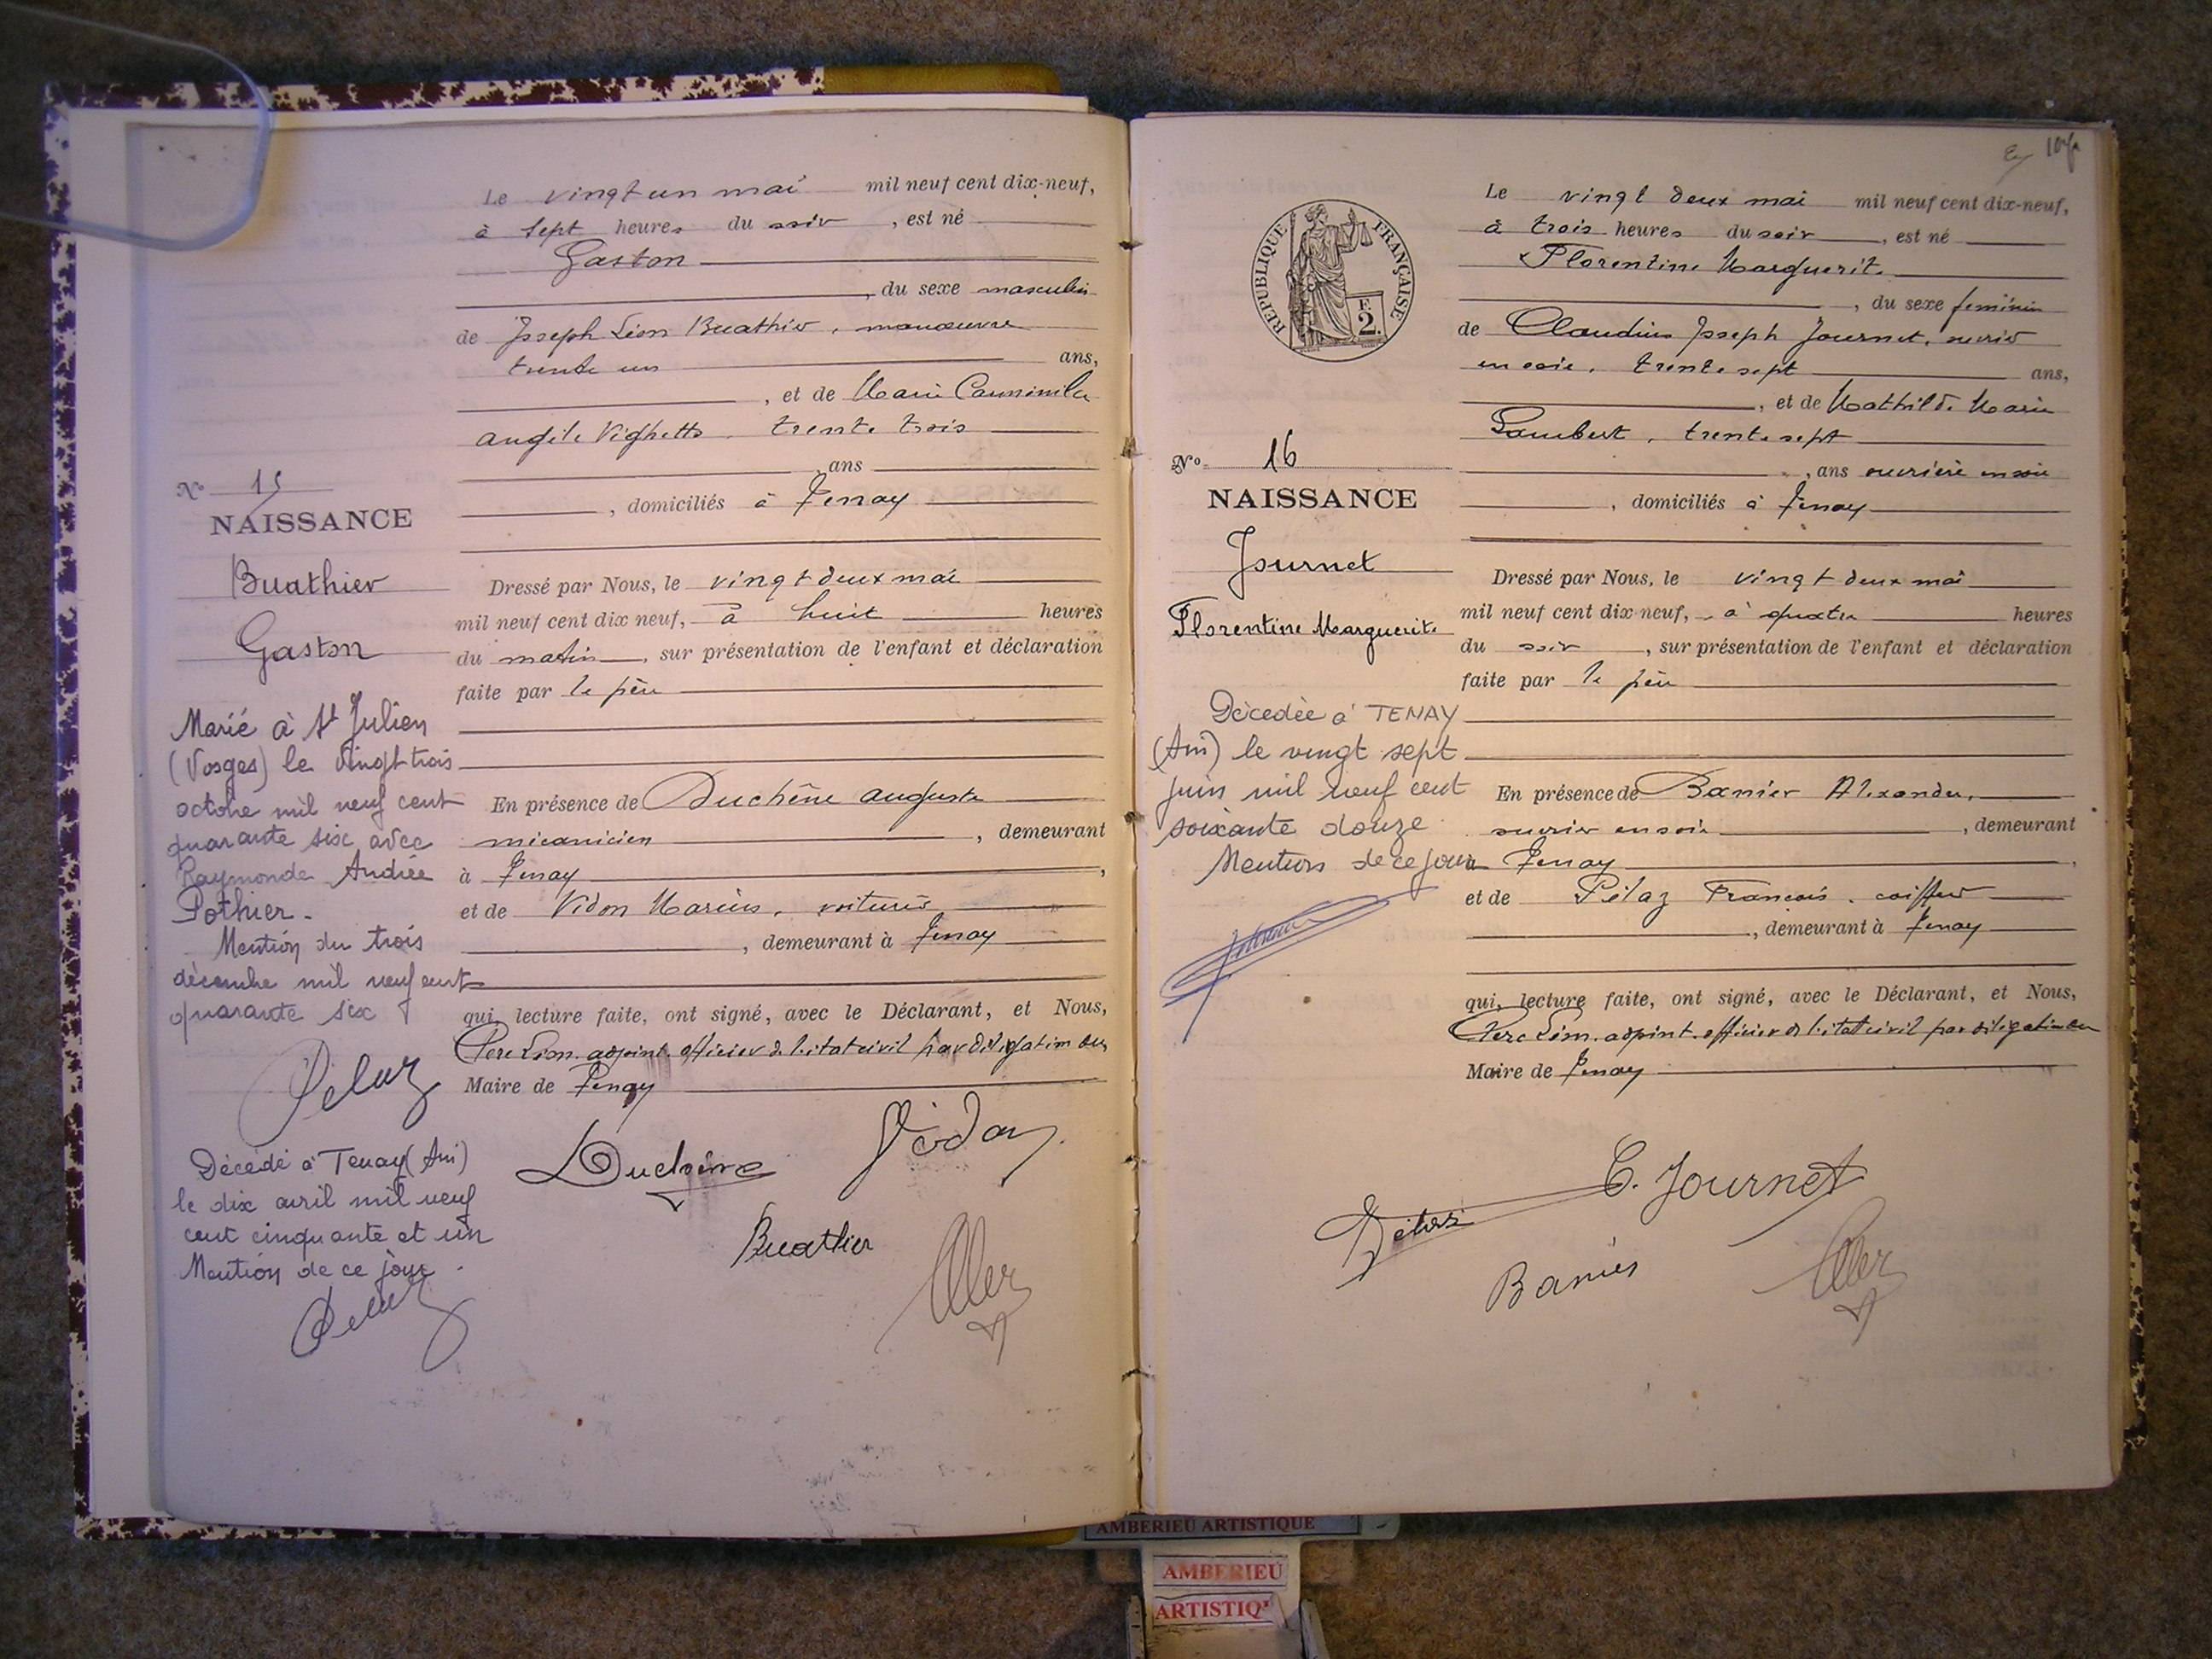 Le vingt un mai mil neuf cent dix-neuf,
à sept heures du soir, est né
Gaston
, du sexe masculin
de Joseph Léon Buathier, manœuvre
trente un ans,
, et de Marie
Angèle Vighetto, trente trois
ans
, domiciliés à Tenay
No 15
NAISSANCE
Buathier
Gaston
Dressé par Nous, le vingt deux mai
mil neuf cent dix neuf, à huit heures
du matin, sur présentation de l'enfant et déclaration
faite par le père
En présence de Duchêne Auguste
mécanicien, demeurant
à Tenay,
et de Vidon Marius, voiturier
, demeurant à Tenay
qui, lecture faite, ont signé, avec le Déclarant, et Nous,
Léon adjoint officier de l'état civil par délégation du
Maire de Tenay
Marié à St Julien
(Vosges) le vingt trois
octobre mil neuf cent
quarante six avec
Raymonde Andrée
Pothier.
Mention du trois
décembre mil neuf cent
quarante six
Décédé à Tenay (Ain)
le dix avril mil neuf
cent cinquante et un
Mention de ce jour.
Duchêne
Vidon
Buathier
107
Le vingt deux mai mil neuf cent dix-neuf,
à trois heures du soir, est né
Florentine Marguerite
, du sexe féminin
de Claudius Joseph Journet, ouvrier
en soie, trente sept ans,
, et de Mathilde Marie
Lambert, trente sept
, ans ouvrière en soie
, domiciliés à Tenay
RÉPUBLIQUE FRANÇAISE
2.
No 16
NAISSANCE
Journet
Florentine Marguerite
Dressé par Nous, le vingt deux mai
mil neuf cent dix-neuf, à quatre heures
du soir, sur présentation de l'enfant et déclaration
faite par le père
En présence de Banier Alexandre,
ouvrier en soie, demeurant
à Tenay,
et de Pélaz François, coiffeur
, demeurant à Tenay
qui, lecture faite, ont signé, avec le Déclarant, et Nous,
Léon adjoint officier de l'état civil par délégation du
Maire de Tenay
Décédée à TENAY
(Ain) le vingt sept
juin mil neuf cent
soixante douze
Mention de ce jour
C. Journet
Banier
AMBERIEU ARTISTIQUE
AMBERIEU
ARTISTIQ